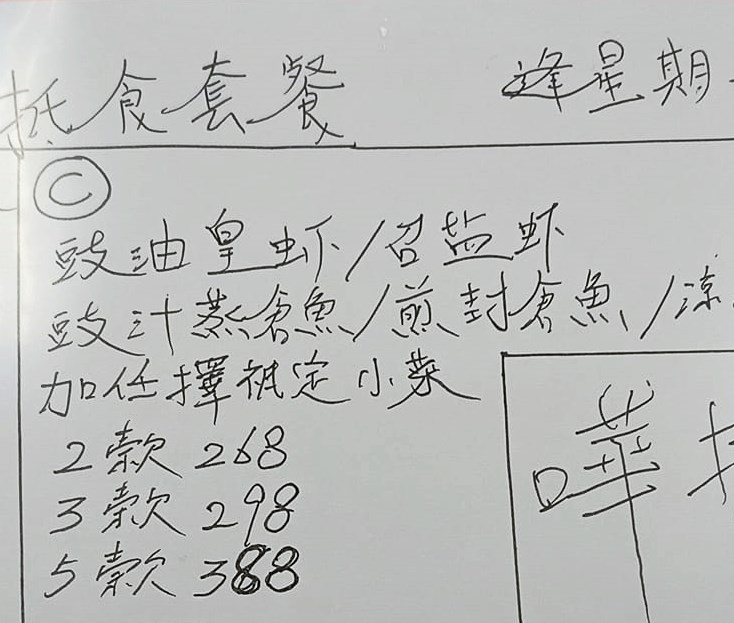 抵食套餐 逢星期
C
豉油皇虾/召盐虾
豉汁蒸倉魚/煎封倉魚/涼
加任擇祇定小菜
2款 268
3款 298
5款 388
嘩